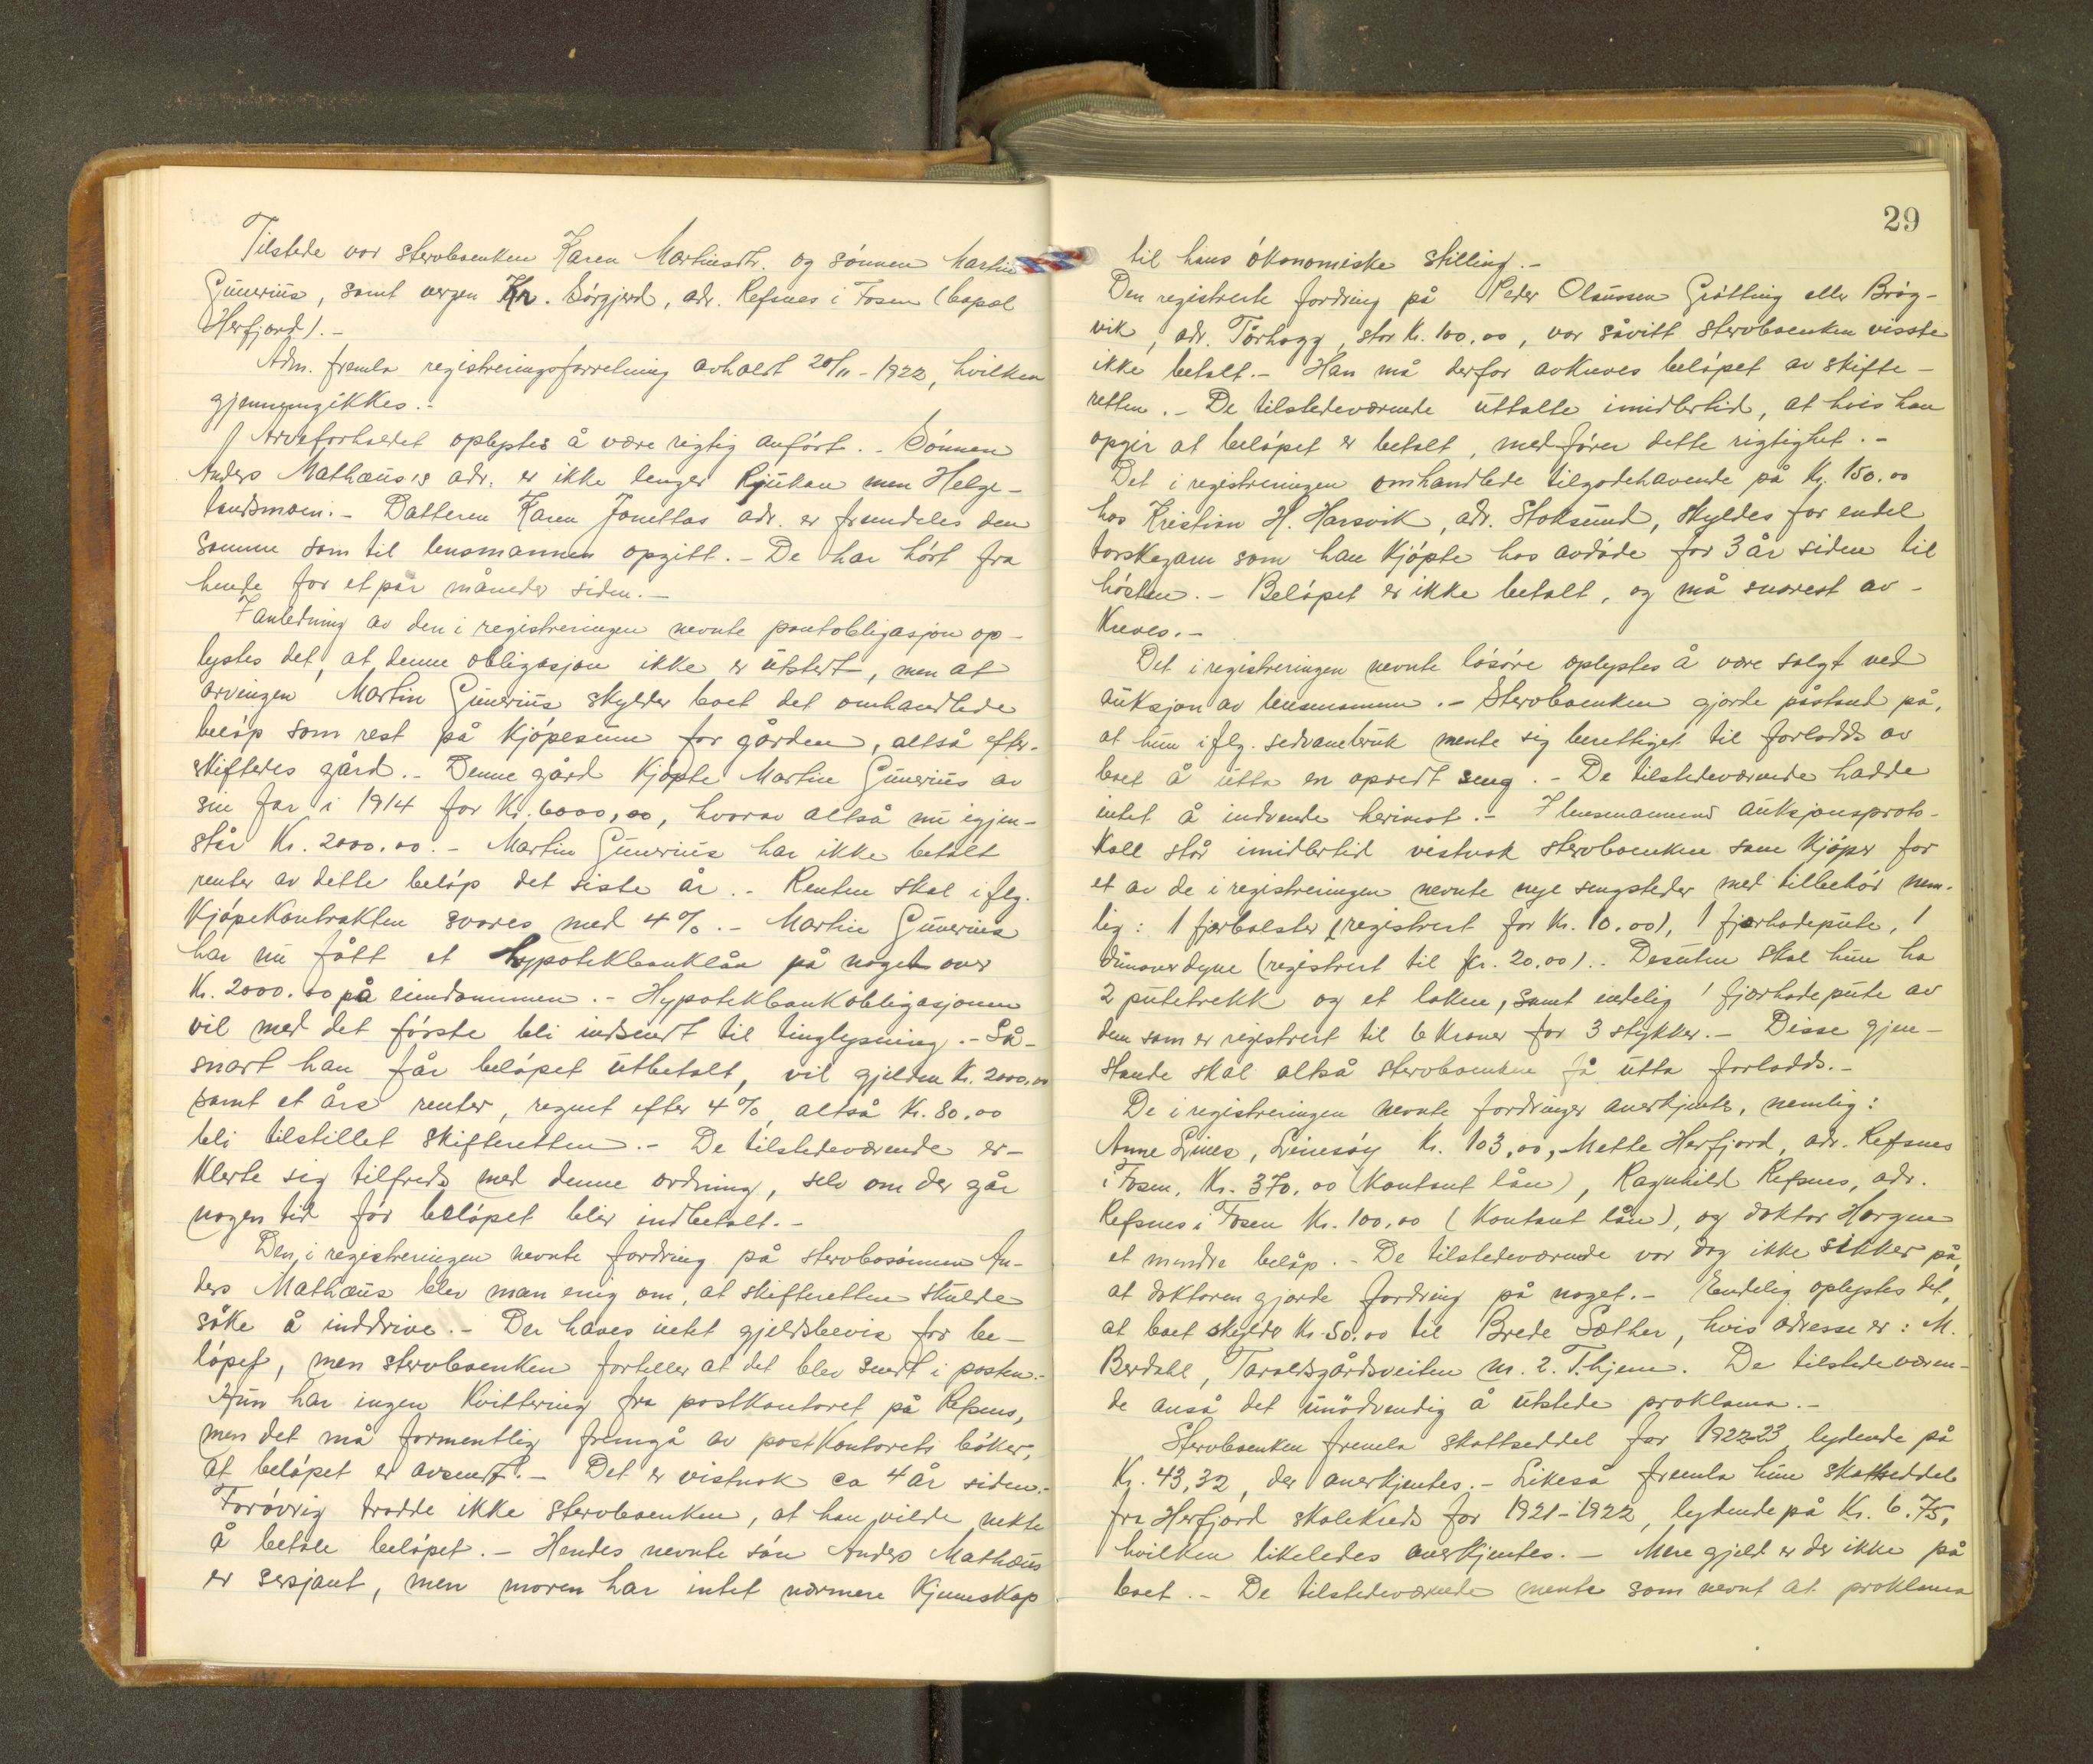 Tilstede var stervboenken Karen Martinsdtr. og sønnen Martin
Gunerius, samt vergen Kr. Sørgjerd, adr. Refsnes i Fosen (bopæl
Herfjord).-
Adm. fremla registreringsforretning avholdt 20/11-1922, hvilken
gjennemgikkes.-
Arveforholdet oplystes å være rigtig anført.- Sønnen
Anders Mathæus's adr. er ikke lenger Rjukan men Helge-
landsmoen.- Datteren Karen Jonettas adr. er fremdeles den
samme som til lensmannen opgitt.- De har hørt fra
hende for et par måneder siden.-
I anledning av den i registreringen nevnte pantobligasjon op-
lystes det, at denne obligasjon ikke er utstedt, men at
arvingen Martin Gunerius skylder boet det omhandlede
beløp som rest på kjøpesum for gården, altså efter-
skiftedes gård.- Denne gård kjøpte Martin Gunerius av
sin far i 1914 for Kr. 6000,00, hvorav altså nu igjen-
står Kr. 2000.00.- Martin Gunerius har ikke betalt
renter av dette beløp det siste år.- Renten skal i flg.
kjøpekontrakten svares med 4%.- Martin Gunerius
har nu fått et hypotekbanklån på noget over
Kr. 2000.00 på eiendommen.- Hypotekbankobligasjonen
vil med det første bli indsendt til tinglysning.- Så-
snart han får beløpet utbetalt, vil gjelden Kr. 2000,00
samt et års renter, regnet efter 4%, altså Kr. 80.00
bli tilstillet skifteretten.- De tilstedeværende er-
klerte sig tilfreds med denne ordning, selv om der går
nogen tid før beløpet blir indbetalt.-
Den i registreringen nevnte fordring på stervbosønnen An-
ders Mathæus blev man enig om, at skifteretten skulde
søke å inddrive.- Der haves intet gjeldsbevis for be-
løpet, men stervboenken forteller at det blev sendt i posten.-
Hun har ingen kvittering fra postkontoret på Refsnes,
men det må formentlig fremgå av postkontorets bøker,
at beløpet er avsendt.- Det er vistnok ca 4 år siden.-
Forøvrig trodde ikke stervboenken, at han vilde nekte
å betale beløpet.- Hendes nevnte søn Anders Mathæus
er sersjant, men moren har intet nærmere kjennskap
29
til hans økonomiske stilling.-
Den registrerte fordring på Peder Olaussen Grøtting eller Brøg-
vik, adr. Tårhogg, stor Kr. 100.00, var såvitt stervboenken visste
ikke betalt.- Han må derfor avkreves beløpet av skifte-
retten.- De tilstedeværende uttalte imidlertid, at hvis han
opgir at beløpet er betalt, medfører dette rigtighet.-
Det i registreringen omhandlede tilgodehavende på Kr. 150.00
hos Kristian H. Harsvik, adr. Stoksund, skyldes for endel
torskegarn som han kjøpte hos avdøde for 3 år siden til
høsten.- Beløpet er ikke betalt, og må snarest av-
kreves.-
Det i registreringen nevnte løsøre oplystes å være solgt ved
auksjon av lensmannen.- Stervboenken gjorde påstand på,
at hun i flg. sedvanebruk mente sig berettiget til forlodds av
boet å utta en opredt seng.- De tilstedeværende hadde
intet å indvende herimot.- I lensmannens auksjonsproto-
koll står imidlertid vistnok stervboenken som kjøper for
et av de i registreringen nevnte nye sengsteder med tilbehør nem-
lig: 1 fjærbolster (registrert for Kr. 10.00), 1 fjærhodepute, 1
dunoverdyne (registrert til Kr. 20.00).. Desuten skal hun ha
2 putetrekk og et laken, samt endelig 1 fjærhodepute av
dem som er registrert til 6 kroner for 3 stykker.- Disse gjen-
stande skal altså stervboenken få utta forlodds.-
De i registreringen nevnte fordringer anerkjentes, nemlig:
Anne Lines, Linesøy Kr. 103,00, Mette Herfjord, adr. Refsnes
i Fosen, Kr. 370,00 (kontant lån), Ragnhild Refsnes, adr.
Refsnes i Fosen Kr. 100,00 (kontant lån), og doktor Hargne
et mindre beløp.- De tilstedeværende var dog ikke sikker på,
at doktoren gjorde fordring på noget.- Endelig oplystes det,
at boet skylder Kr. 50.00 til Brede Sæther, hvis adresse er: M.
Berdahl, Taraldsgårdsveiten nr. 2. T.hjem. De tilstedeværen-
de anså det unødvendig å utstede proklama.-
Stervboenken fremla skattseddel for 1922-23 lydende på
Kr. 43,32, der anerkjentes.- Likeså fremla hun skatteseddel
fra Herfjord skolekreds for 1921-1922, lydende på Kr. 6.75,
hvilken likeledes anerkjentes.- Mere gjeld er der ikke på
boet.- De tilstedeværende mente som nevnt at proklama